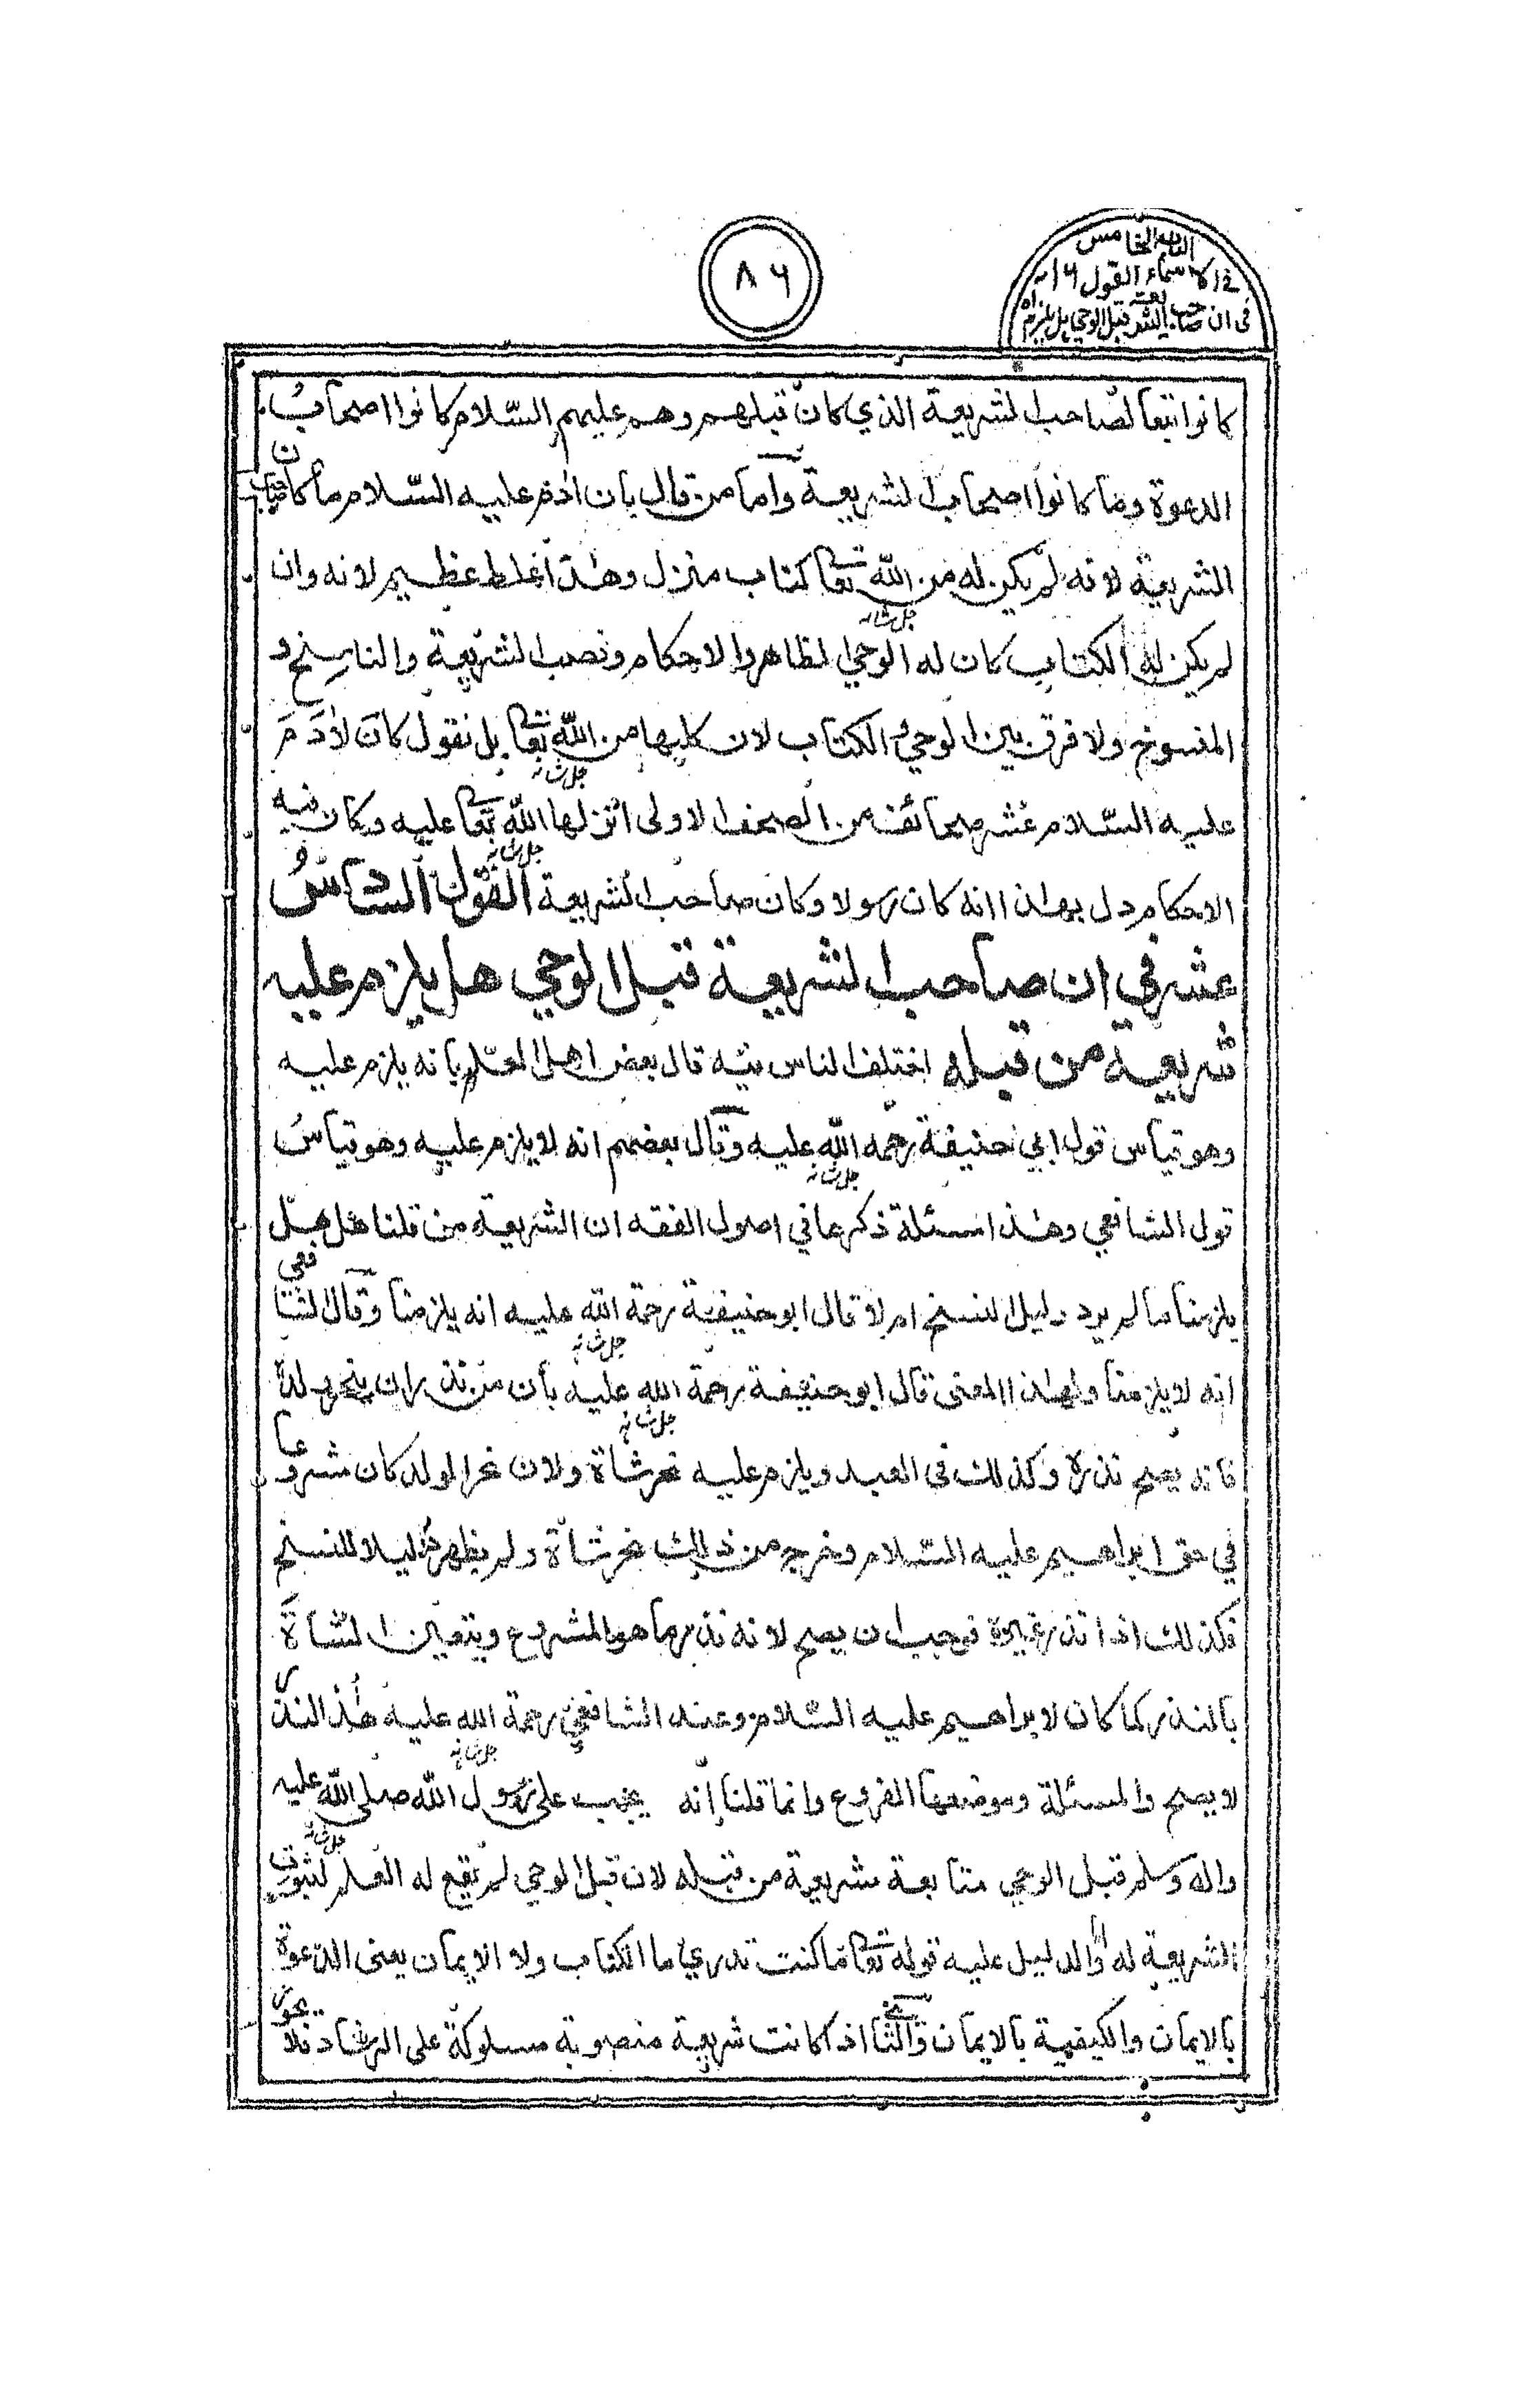 ٨٦
الباب الخامس
في الاسماء القول ١٦
في ان صاحب الشريعة قبل الوحي هل يلزم اه
كانوا تبعا لصاحب الشريعة الذي كان قبلهم وهم عليهم السّلام كانوا اصحاب
الدعوة وما كانوا اصحاب الشريعة واما من قال بان اٰدم عليه السّلام ما كان صاحب
الشريعة لانه لم يكن له من اللّه تعا كتاب منزل وهٰذا غلط عظيم لانه وان
جل شانه
لم يكن له الكتاب كان له الوحي الظاهر والاحكام ونصب الشريعة والناسخ و
المنسوخ ولا فرق بين الوحي والكتاب لان كليها من اللّه تعا بل نقول كان لاٰدم
جل شانه
عليه السّلام عشر صحائف من الصحف الاولى انزلها اللّه تعا عليه وكان فيه
جل شانه
الاحكام دل بهٰذا انه كان رسولا وكان صاحب الشريعة القول السادس
عشر في ان صاحب الشريعة قبل الوحي هل يلزم عليه
شريعة من قبله اختلف الناس فيه قال بعض اهل العلم بانه يلزم عليه
وهو قياس قول ابي حنيفة رحمه اللّه عليه وقال بعضهم انه لا يلزم عليه وهو قياس
جل شانه
قول الشافعي وهٰذا مسئلة ذكرها في اصول الفقه ان الشريعة من قلنا هل هل
يلزمنا ما لم يرد دليل النسخ ام لا قال ابو حنيفة رحمة اللّه عليه انه يلزمنا وقال الشافعي
جل شانه
انه لا يلزمنا ولهٰذا المعنى قال ابو حنيفة رحمة اللّه عليه بأن من نذر ان ينحر ولده
جل شانه
فانه يصح نذره وكذلك في العبد ويلزم عليه نحر شاة ولان نحر الولد كان مشروعا
في حق ابراهيم عليه السّلام وخرج من ذلك بنحر شاة ولم يظهر دليلا للنسخ
فكذلك اذا نذر غيره فوجب ان يصح لانه نذر بما هو المشروع ويتعين الشاة
بالنذر كما كان لابراهيم عليه السّلام وعند الشافعي رحمة اللّه عليه هٰذا النذر
جل شانه
لا يصح والمسئلة وموضعها الفروع وانما قلنا إنه يجب على رسول اللّه صلى اللّه عليه
جل شانه
واله وسلم قبل الوحي متابعة شريعة من قبله لان قبل الوحي لم يقع له العلم لثبوت
الشريعة له والدليل عليه قوله تعا ما كنت تدري ما الكتاب ولا الايمان يعنى الدعوة
بالايمان والكيفية بالايمان والثا اذا كانت شريعة منصوبة مسلوكة على الرشاد فلا يجوز